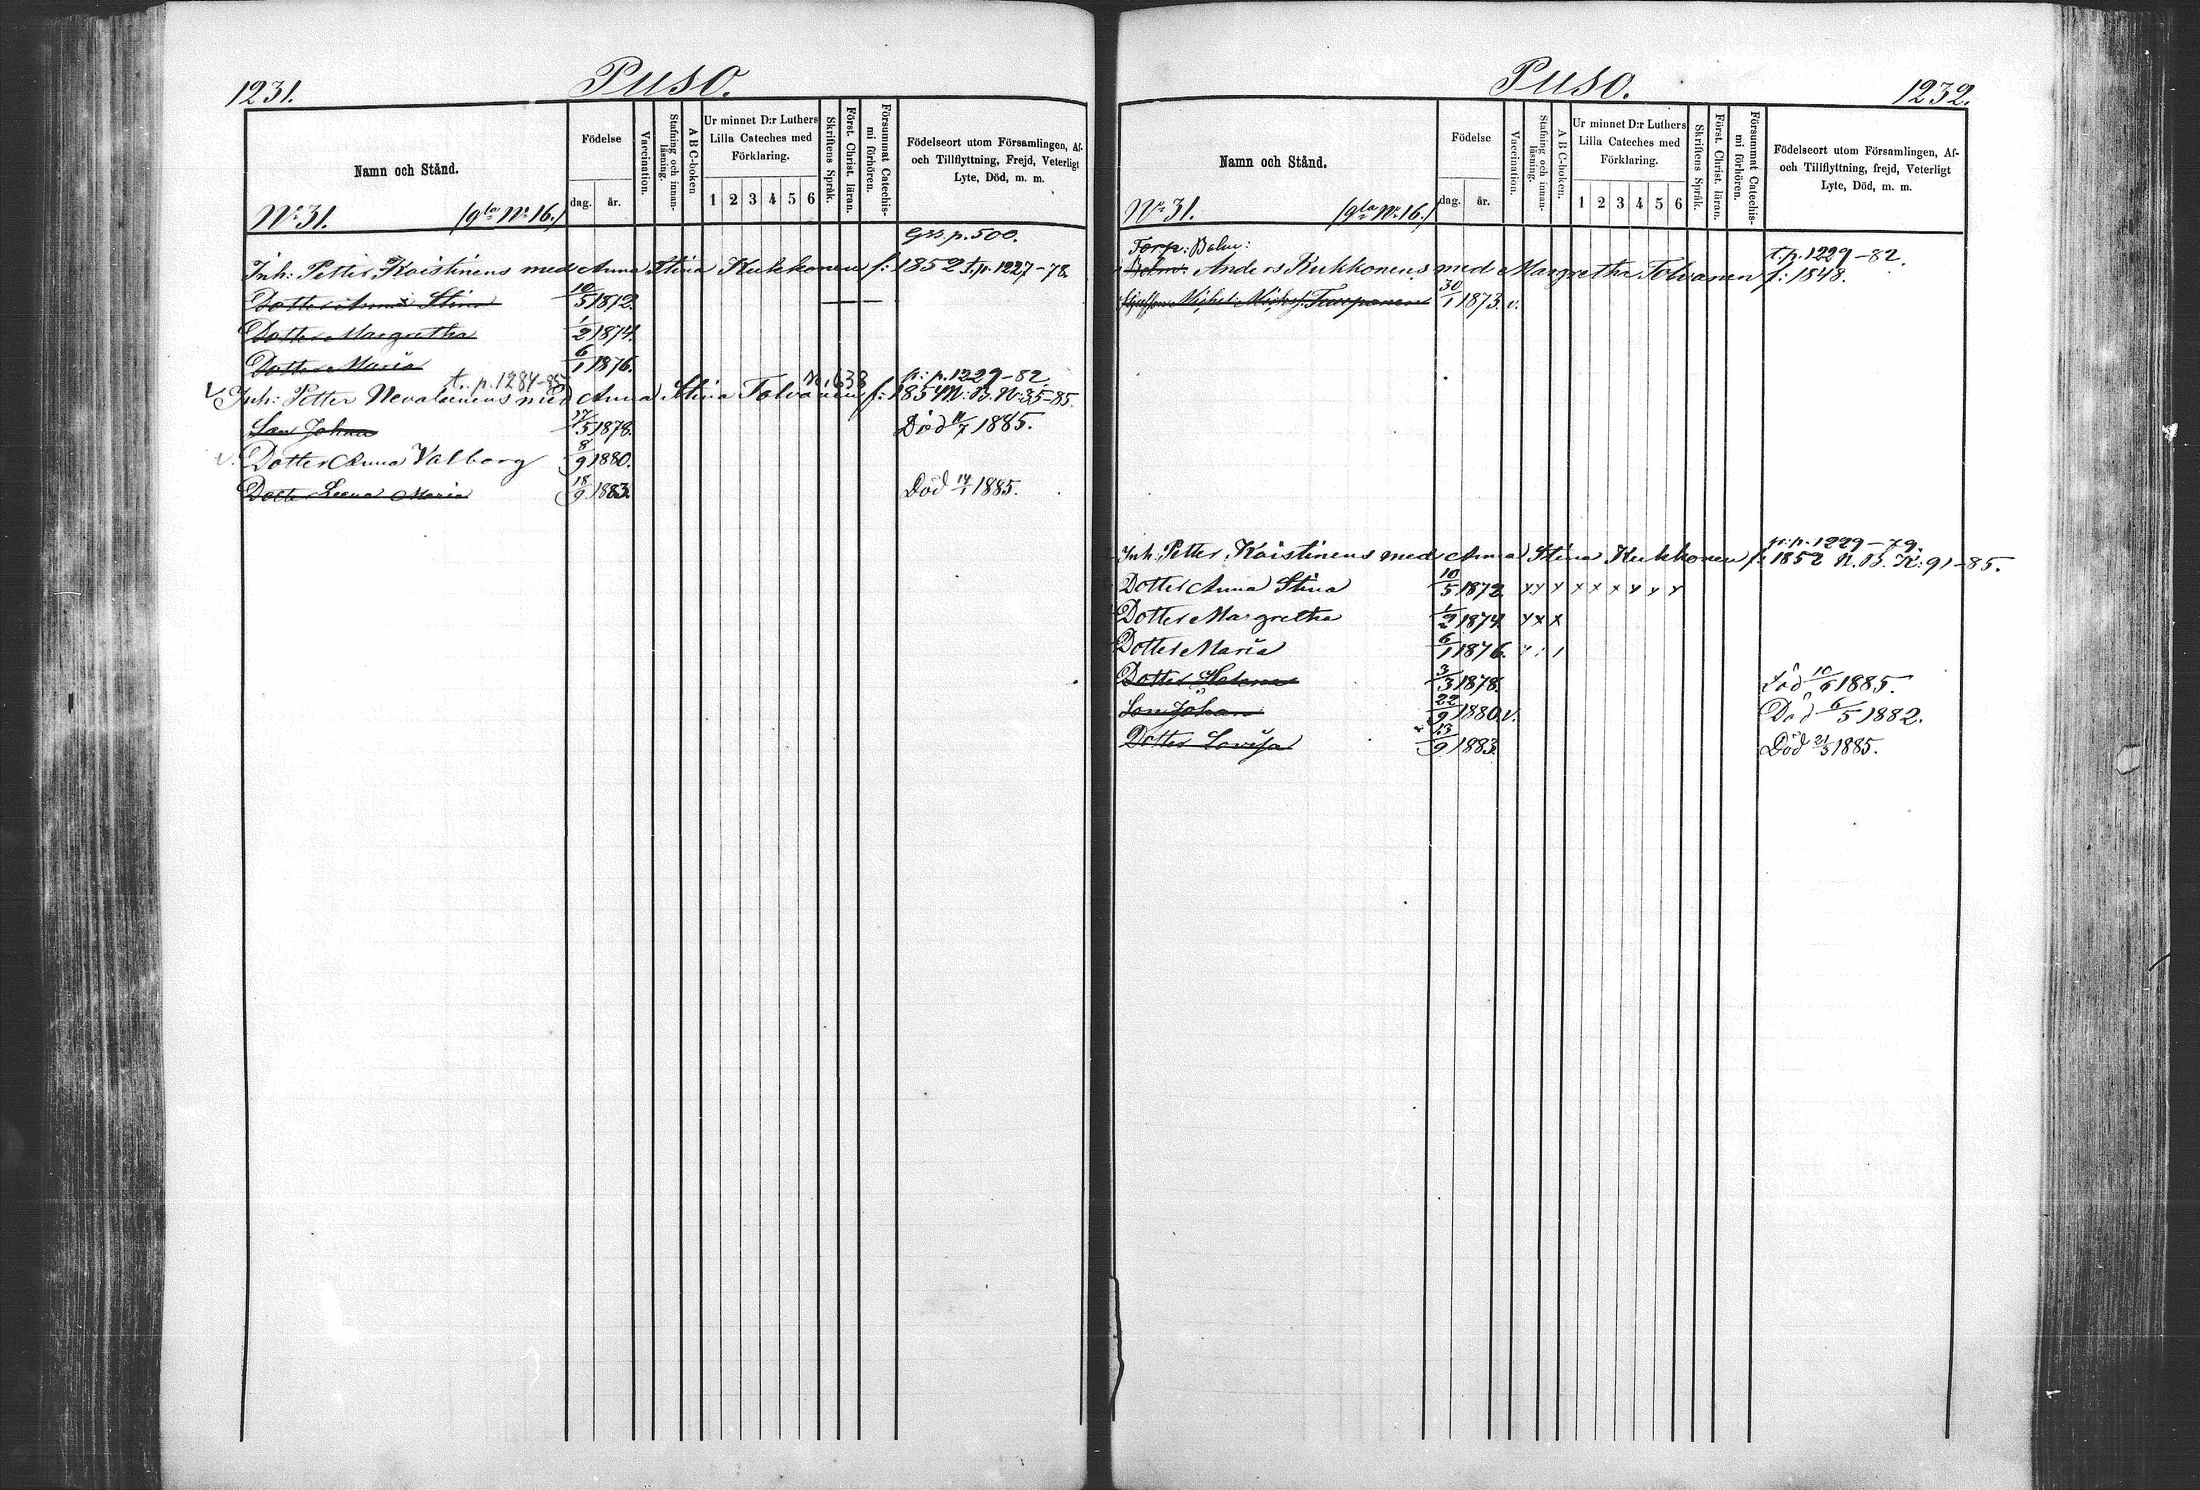 1231.
Puso.
Namn och Stånd.
Födelse
dag. år.
Vaccination.
Stafning och innan-läsning.
A B C-boken
Ur minnet D:r Luthers Lilla Cateches med Förklaring.
1 2 3 4 5 6
Skriftens Språk.
Först. Christ. läran.
Försummat Catechis-mi förhören.
Födelseort utom Församlingen, Af- och Tillflyttning, Frejd, Veterligt Lyte, Död, m. m.
N:o 31. (g:la N:o 16.)
p. 500.
Inh: Petter Koistinens med Anna Stina Kukkonen f: 1852 t. p. 1227-78.
Dotter Anna Stina 10/5 1872.
Dotter Margretha 1/2 1874.
Dotter Maria 6/1 1876.
t. p. 1284-85 N. 638 fr: p. 1229-82.
Inh: Petter Nevalainens med Anna Stina Tolvanen f: 185 M: B. N: 35-85.
Son Johan 17/5 1878. Död 11/7 1885.
Dotter Anna Valborg 8/9 1880.
Dotter Leena Maria 18/9 1883. Död 14/1 1885.
Puso.
1232.
Namn och Stånd.
Födelse
dag. år.
Vaccination.
Stafning och innan-läsning.
A B C-boken.
Ur minnet D:r Luthers Lilla Cateches med Förklaring.
1 2 3 4 5 6
Skriftens Språk.
Först. Christ. läran.
Försummat Catechis-mi förhören.
Födelseort utom Församlingen, Af- och Tillflyttning, frejd, Veterligt Lyte, Död, m. m.
N:o 31. (g:la N:o 16.)
Torp: Bolm: t. p. 1229-82.
Anders Kukkonens med Margretha Tolvanen f: 1848.
Michel Mich:s Turpanen 30/1 1873. v.
fr: p. 1229-79.
Inh: Petter Koistinens med Anna Stina Kukkonen f: 1852 N. B. K: 91-85.
Dotter Anna Stina 10/5 1872. x x x x x x x x x
Dotter Margretha 1/2 1874. x x x
Dotter Maria 6/1 1876.
Dotter Helena 3/3 1878. Död 10/6 1885.
Son Johan 22/9 1880. v. Död 6/5 1882.
Dotter Lovisa 13/9 1883. Död 21/3 1885.